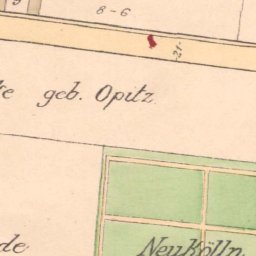 8-6
-21-
geb. Opitz
Neukölln